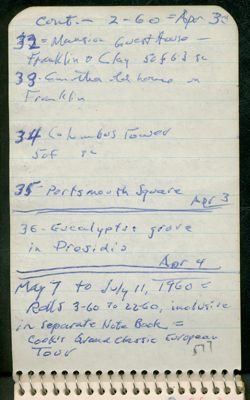 Cont. - 2-60 = Apr 3rd
32 = Mansion Guest House -
Franklin & Clay
33 - old house on
Franklin
34 Columbus Tower
35 - Portsmouth Square
Apr 3
36 - Eucalyptus grove
in Presidio
Apr 4
May 7 to July 11, 1960 =
Rolls 3-60 to 22-60, inclusive
in separate Note Book =
Cook's Grand Classic European
Tour